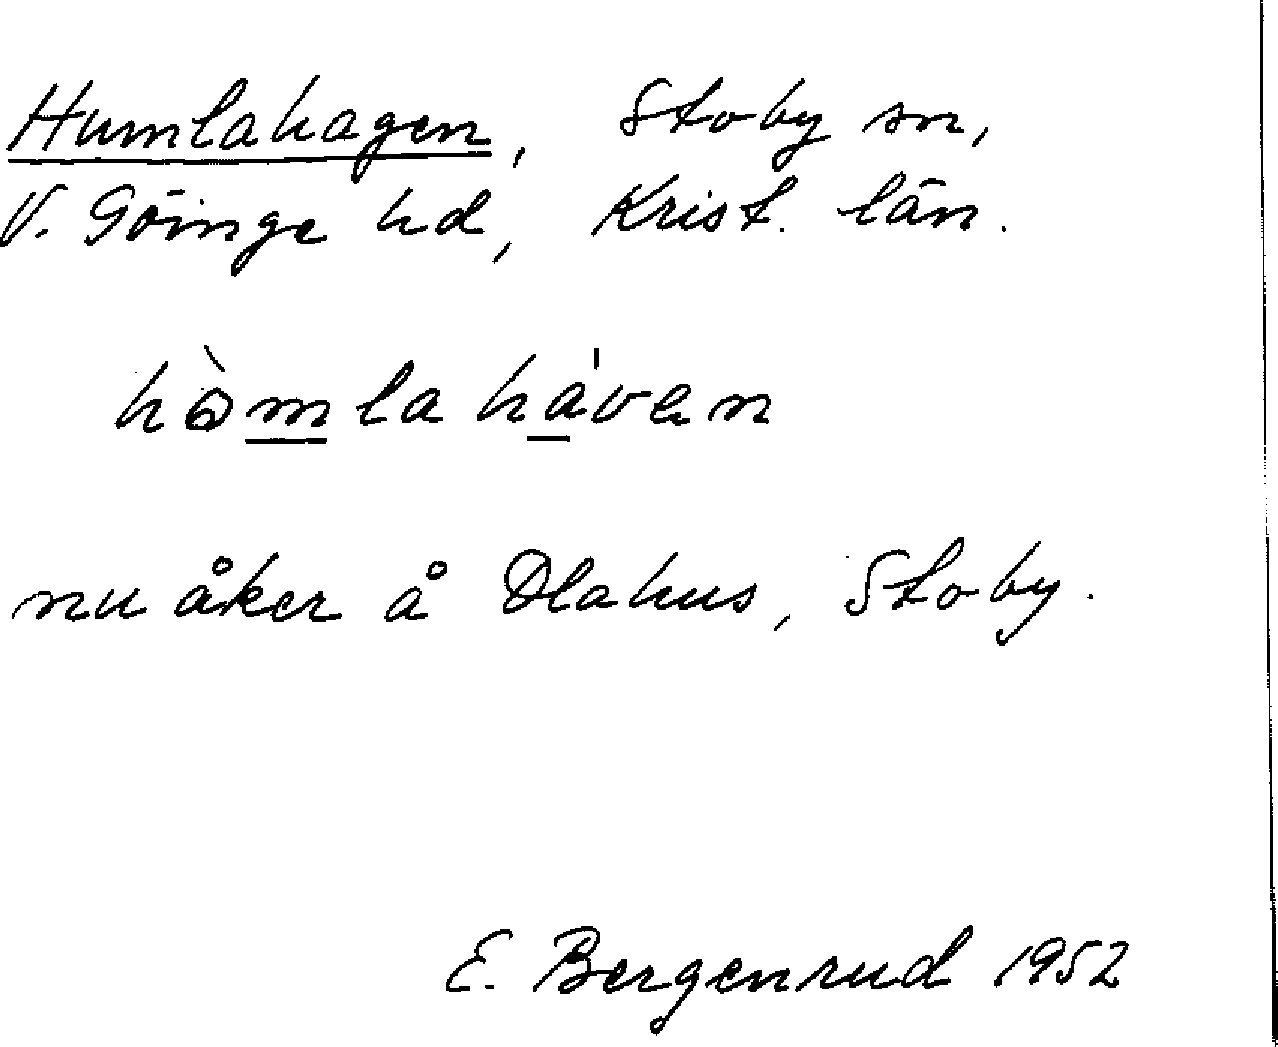 Humlahagen, Stoby sn,
V. Göinge hd, Krist. län.
hòmlahávan
nu åker å Olahus, Stoby.
E. Bergenrud 1952